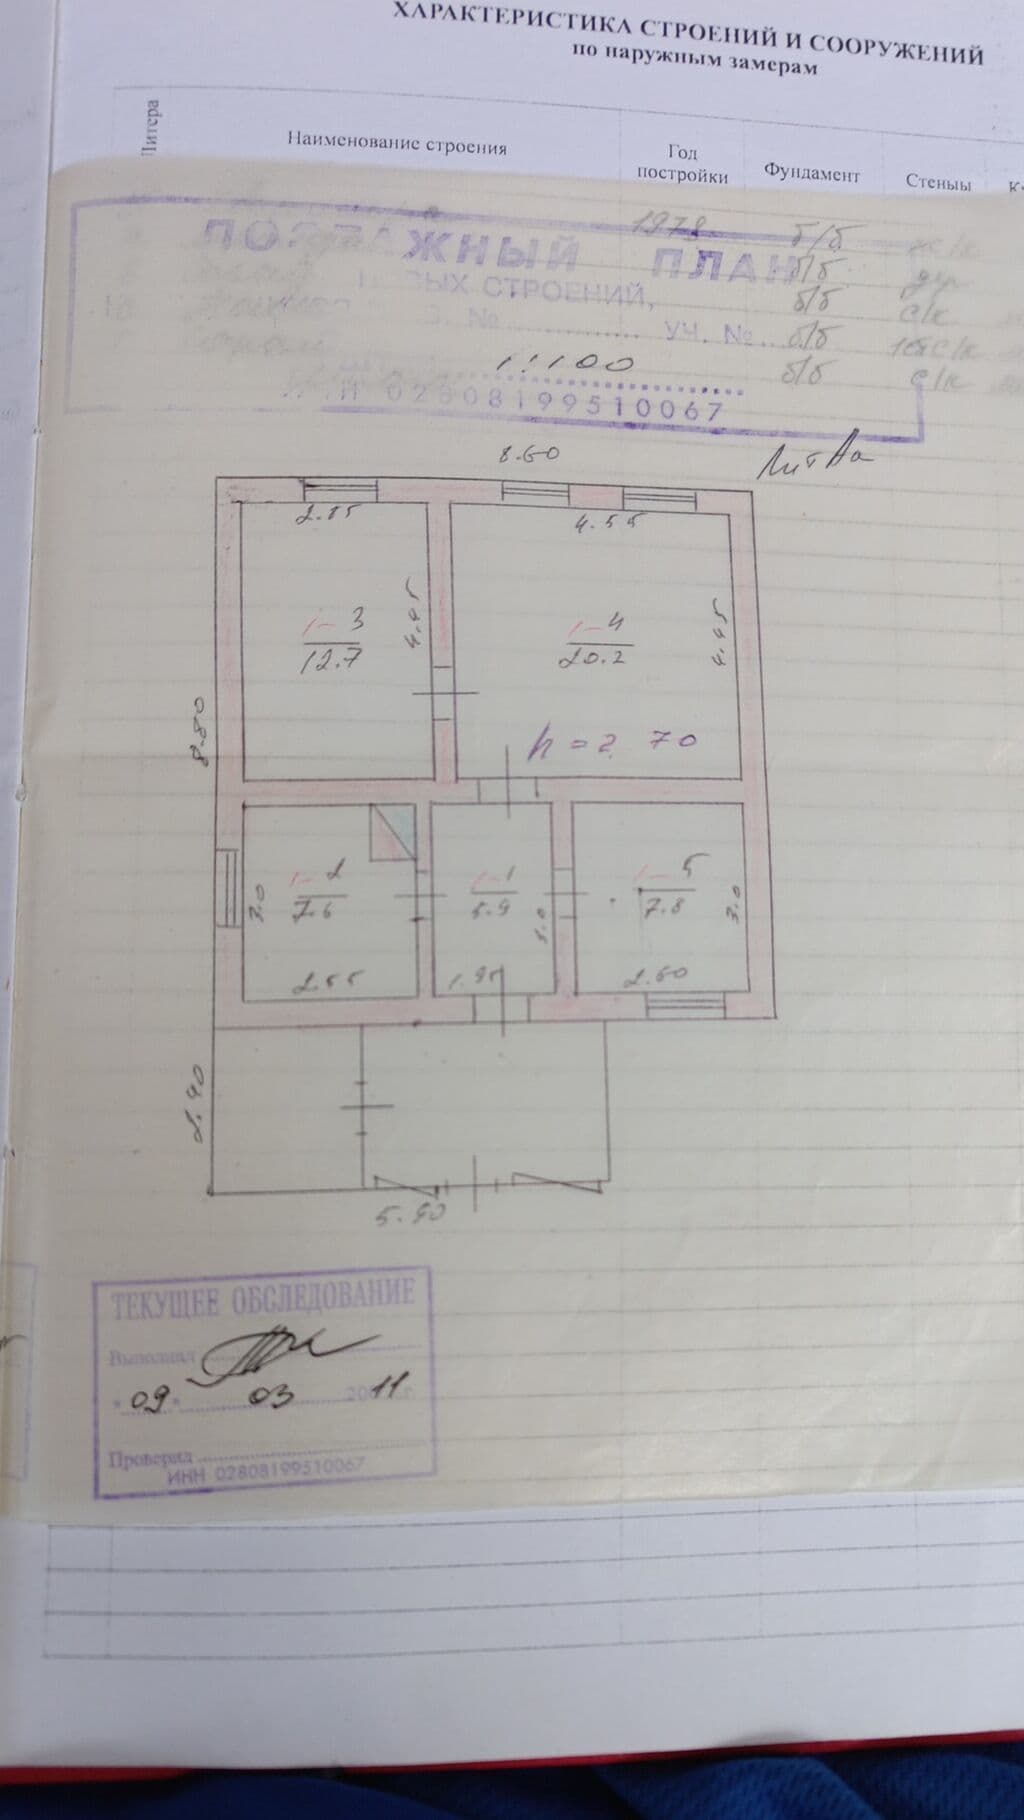 ХАРАКТЕРИСТИКА СТРОЕНИЙ И СООРУЖЕНИЙ
по наружным замерам
Литера
Наименование строения
Год
постройки
Фундамент
Стеныы
ПОЭТАЖНЫЙ ПЛАН
СТРОЕНИЙ,
№ УЧ. №
1:100
ИНН 02808199510067
1978
б/б
б/б
б/б
с/к
б/б
б/б
с/к
Лит Аа
8.60
2.85
4.55
4.45
4.45
1-3
12.7
1-4
20.2
8.80
h = 2.70
1-2
7.6
3.0
2.55
1-1
5.9
3.0
1.95
1-5
7.8
3.0
2.60
2.40
5.90
ТЕКУЩЕЕ ОБСЛЕДОВАНИЕ
Выполнил
"09" 03 2011 г.
Проверил
ИНН 02808199510067